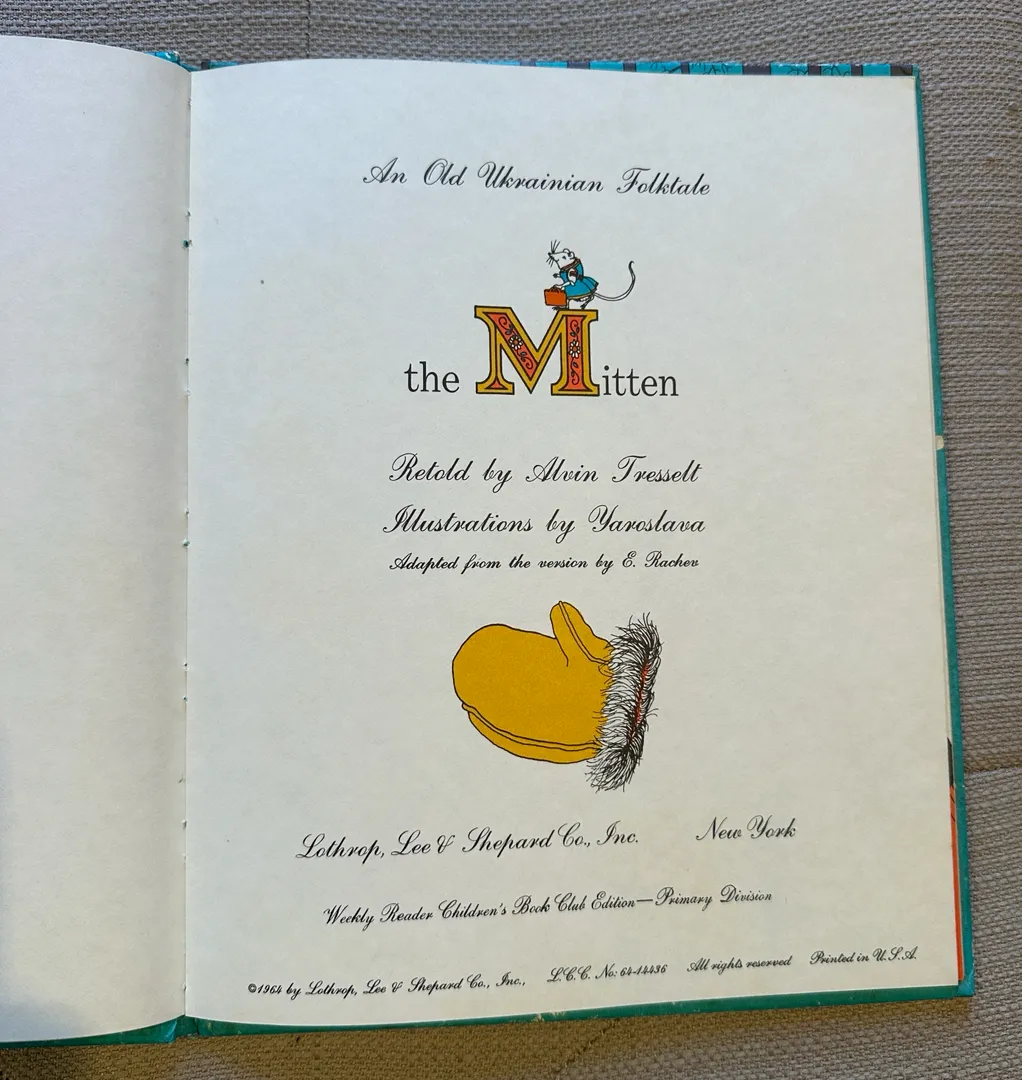 An Old Ukrainian Folktale
the Mitten
Retold by Alvin Tresselt
Illustrations by Yaroslava
Adapted from the version by E. Rachev
Lothrop, Lee & Shepard Co., Inc. New York
Weekly Reader Children's Book Club Edition—Primary Division
©1964 by Lothrop, Lee & Shepard Co., Inc., L.C.C. No: 64-14436 All rights reserved Printed in U.S.A.